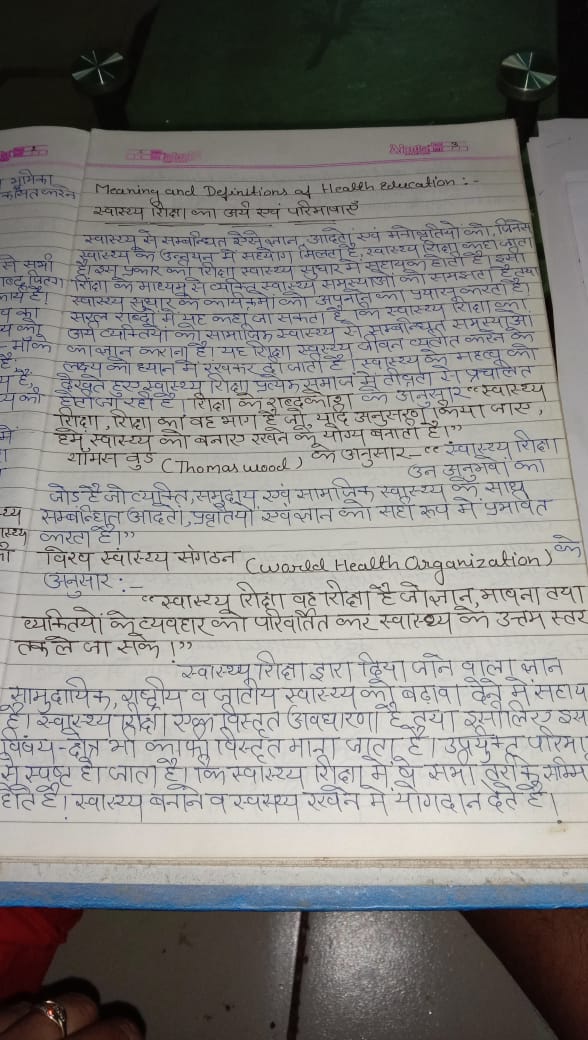 Meaning and Definitions of Health Education :-
स्वास्थ्य शिक्षा का अर्थ एवं परिभाषाएँ
स्वास्थ्य से सम्बन्धित ऐसे ज्ञान, आदतों, एवं मनोवृतियों को, जिनसे
स्वास्थ्य के उन्नयन में सहयोग मिलता है, स्वास्थ्य शिक्षा कहा जाता
है। इस प्रकार की शिक्षा स्वास्थ्य सुधार में सहायक होती है। इसी
शिक्षा के माध्यम से व्यक्ति स्वास्थ्य समस्याओं को समझता है, तथा
स्वास्थ्य सुधार के कार्यक्रमों को अपनाने का प्रयास करता है।
सरल शब्दों में यह कहा जा सकता है कि स्वास्थ्य शिक्षा का
अर्थ व्यक्तियों को सामाजिक स्वास्थ्य से सम्बन्धित समस्याओं
का ज्ञान कराना है। यह शिक्षा स्वस्थ्य जीवन व्यतीत करने के
लक्ष्य को ध्यान में रखकर दी जाती है। स्वास्थ्य के महत्व को
देखते हुए स्वास्थ्य शिक्षा प्रत्येक समाज में तीव्रता से प्रचलित
होती जा रही है। शिक्षा के शब्दकोश के अनुसार “स्वास्थ्य
शिक्षा, शिक्षा का वह भाग है जो, यदि अनुसरण किया जाए,
हमें स्वास्थ्य को बनाए रखने के योग्य बनाता है।”
थॉमस वुड (Thomas wood) के अनुसार-“स्वास्थ्य शिक्षा
उन अनुभवों का
जोड़ है जो व्यक्ति, समुदाय एवं सामाजिक स्वास्थ्य के साथ
सम्बन्धित आदतों, प्रवृतियों एवं ज्ञान को सही रूप में प्रभावित
करता है।”
विश्व स्वास्थ्य संगठन (World Health Organization) के
अनुसार :-
“स्वास्थ्य शिक्षा वह शिक्षा है जो ज्ञान, भावना तथा
व्यक्तियों के व्यवहार को परिवर्तित कर स्वास्थ्य के उत्तम स्तर
तक ले जा सके।”
स्वास्थ्य शिक्षा द्वारा दिया जाने वाला ज्ञान
सामुदायिक, राष्ट्रीय व जातीय स्वास्थ्य को बढ़ावा देने में
है। स्वास्थ्य शिक्षा एक विस्तृत अवधारणा है तथा इसीलिए
विषय-क्षेत्र भी काफी विस्तृत माना जाता है। उपर्युक्त
से स्पष्ट हो जाता है। कि स्वास्थ्य शिक्षा में वे सभी तरीके
होते है। स्वास्थ्य बनाने व स्वस्थ्य रखने में योगदान देते है।